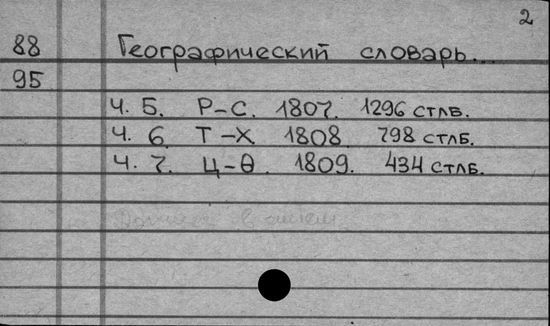 2
88 Географический словарь...
95
Ч. 5. Р-С. 1807. 1296 стлб.
Ч. 6. Т-Х 1808. 798 стлб.
Ч. 7. Ц-Ѳ. 1809. 434 стлб.